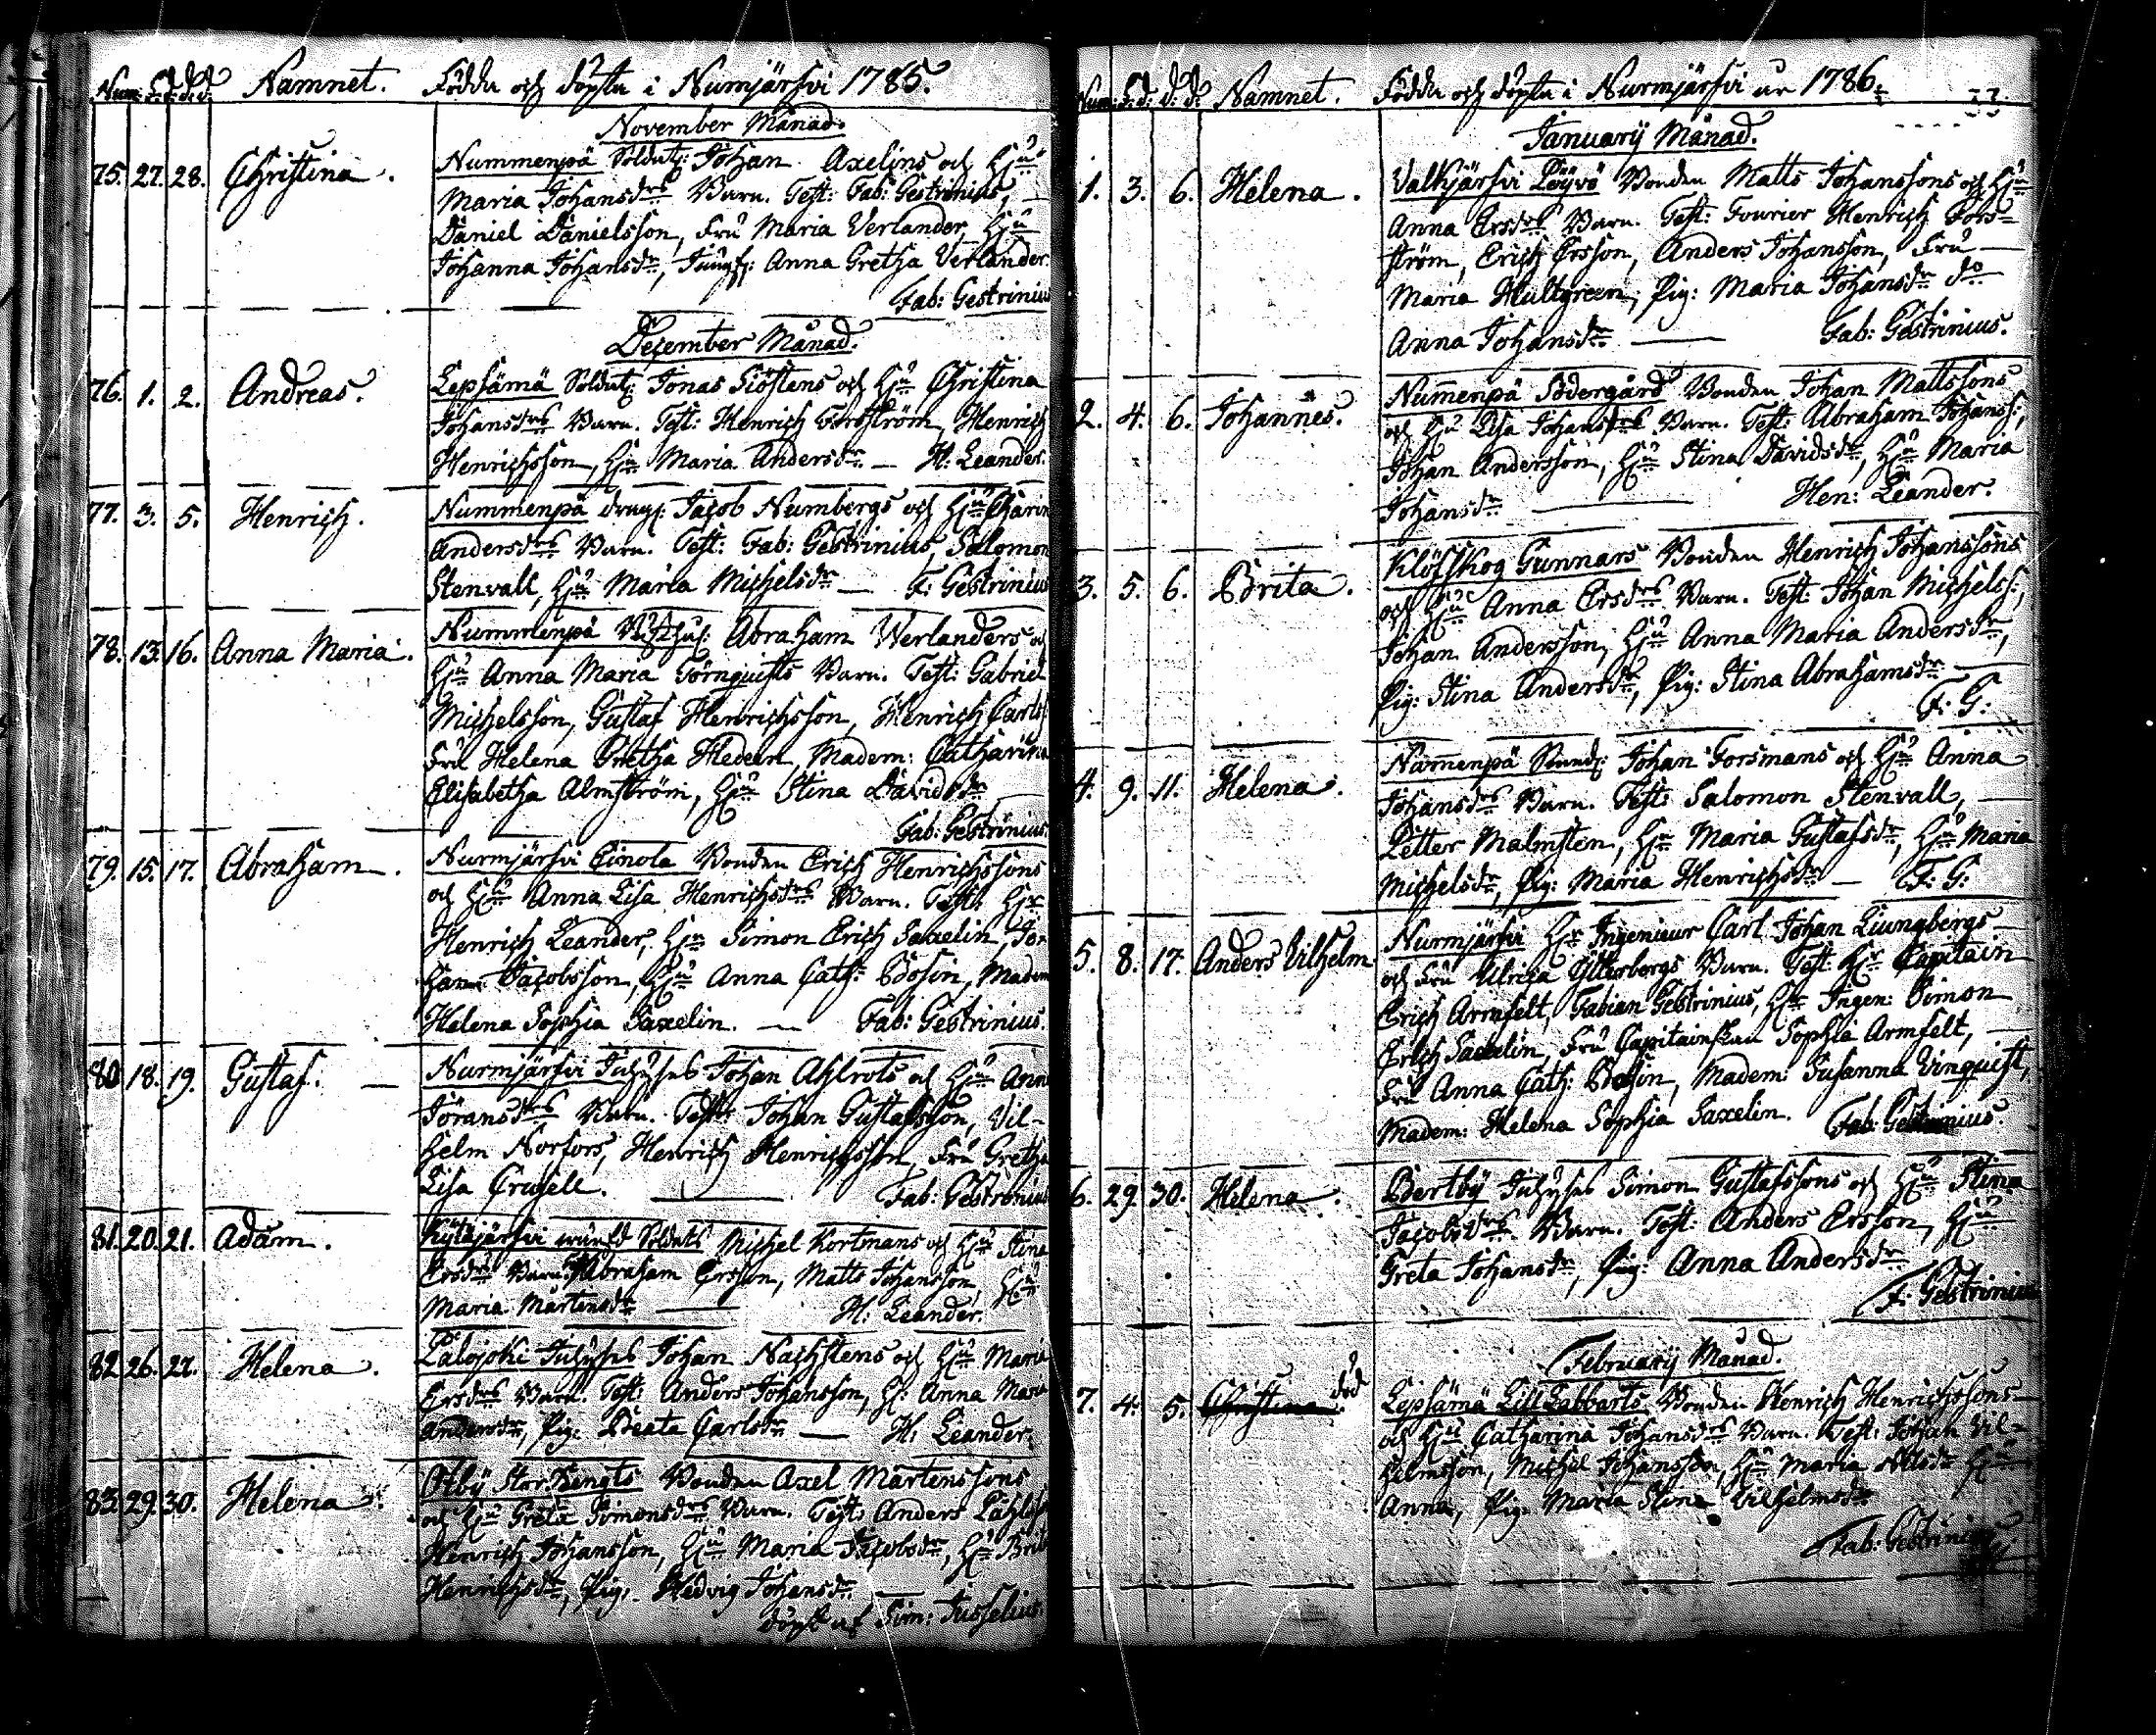 Num: F.d. d.d. Namnet. Födda och döpta i Numjärfvi 1785.
November Månad.
75. 27. 28. Christina. Nummenpä Soldat: Johan Axelins och Hju
Maria Johansdrs Barn. Test: Fab: Gestrinius,
Daniel Danielsson, Fru Maria Verlander, Hju
Johanna Johansdr, Jungf: Anna Gretha Verlander.
Fab: Gestrinius
December Månad.
76. 1. 2. Andreas. Lepsämä Soldat: Jonas Siöstens och Hju Christina
Johansdrs Barn. Test: Henrich Forsström, Henrich
Henrichsson, Hju Maria Andersdr — H: Leander.
77. 3. 5. Henrich. Nummenpä drag: Jacob Numbergs och Hju Carin
Andersdrs Barn. Test: Fab: Gestrinius, Salomon
Stenvall, Hju Maria Michelsdr — F: Gestrinius
78. 13. 16. Anna Maria. Nummenpä Abraham Werlanders och
Hju Anna Maria Törnquists Barn. Test: Gabriel
Michelsson, Gustaf Henrichsson, Henrich Carls
Fru Helena Gretha Hedeen, Madem: Catharina
Elisabetha Almström, Hju Stina Davidsdr
Fab: Gestrinius
79. 15. 17. Abraham. Nurmjärfvi Einola Bonden Erich Henrichssons
och Hju Anna Lisa Henrichsdrs Barn. Test: Hr
Henrich Leander, Hr Simon Erich Saxelin, Jo-
han Jacobsson, Hju Anna Cath: Bosin, Madem
Helena Sophia Saxelin. — Fab: Gestrinius.
80. 18. 19. Gustaf. — Nurmjärfvi Inhyses Johan Ahlrots och Hju Anna
Jöransdrs Barn. Test: Johan Gustafsson, Vil-
helm Norfors, Henrich Henrichsson, Fru Gretha
Lisa Crusell. Fab: Gestrinius
81. 20. 21. Adam. Kytäjärfvi Soldats Michel Kortmans och Hju Stina
Ersdrs Barn. Abraham Ersson, Matts Johansson, Hju
Maria Mårtensdr — H: Leander.
82. 26. 27. Helena. Palojoki Inhyses Johan Nachstens och Hju Maria
Ersdrs Barn. Test: Anders Johansson, H: Anna Maria
Andersdr, Pig: Beata Carlsdr — H: Leander.
83. 29. 30. Helena. Ofby Stor Bengts Bonden Axel Mårtenssons
och Hju Greta Simonsdrs Barn. Test: Anders
Henrich Johansson, Hju Maria Jacobsdr, Hju Brita
Henrichsdr, Pig: Hedvig Johansdr
döpt af Sim: Jusselius.
Num: F.d. d.d. Namnet. Födda och döpta i Nurmjärfvi år 1786. 33.
January Månad.
1. 3. 6. Helena. Valkjärfvi Löyvö Bonden Matts Johanssons och Hju
Anna Ersdrs Barn. Test: Fourier Henrich Fors-
ström, Erich Ersson, Anders Johansson, Fru
Maria Hultgreen, Pig: Maria Johansdr do
Anna Johansdr — Fab: Gestrinius.
2. 4. 6. Johannes. Numenpä Södergård Bonden Johan Mattssons
och Hju Lisa Johansdrs Barn. Test: Abraham Johans:,
Johan Andersson, Hju Stina Davidsdr, Hju Maria
Johansdr — Hen: Leander.
3. 5. 6. Brita. Klöfskog Gunnars Bonden Henrich Johanssons
och Hju Anna Ersdrs Barn. Test: Johan Michels:,
Johan Andersson, Hju Anna Maria Andersdr,
Pig: Stina Andersdr, Pig: Stina Abrahamsdr
F: G:
4. 9. 11. Helena. Numenpä Johan Forsmans och Hju Anna
Johansdrs Barn. Test: Salomon Stenvall,
Petter Malmsten, Hju Maria Gustafsdr, Hju Maria
Michelsdr, Pig: Maria Henrichsdr — F: G:
5. 8. 17. Anders Vilhelm Nurmjärfvi Hr Ingenieur Carl Johan Liungbergs
och Fru Ulrica Gitterbergs Barn. Test: Hr Capitain
Erich Armfelt, Fabian Gestrinius, Hr Ingen: Simon
Erich Saxelin, Fru Capitainskan Sophia Armfelt,
Fru Anna Cath: Bosin, Madem: Susanna Vinquist,
Madem: Helena Sophia Saxelin. Fab: Gestrinius.
6. 29. 30. Helena. Bertby Inhyses Simon Gustafssons och Hju Stina
Jacobsdrs Barn. Test: Anders Ersson, Hju
Greta Johansdr, Pig: Anna Andersdr
F: Gestrinius
February Månad.
7. 4. 5. Christina. död Lepsämä Lill Labbarts Bonden Henrich Henrichssons
och Hju Catharina Johansdrs Barn. Test: Johan Vil-
helmsson, Michel Johansson, Hju Maria Nilsdr Hju
Anna, Pig: Maria Stina Vilhelmsdr
Fab: Gestrinius